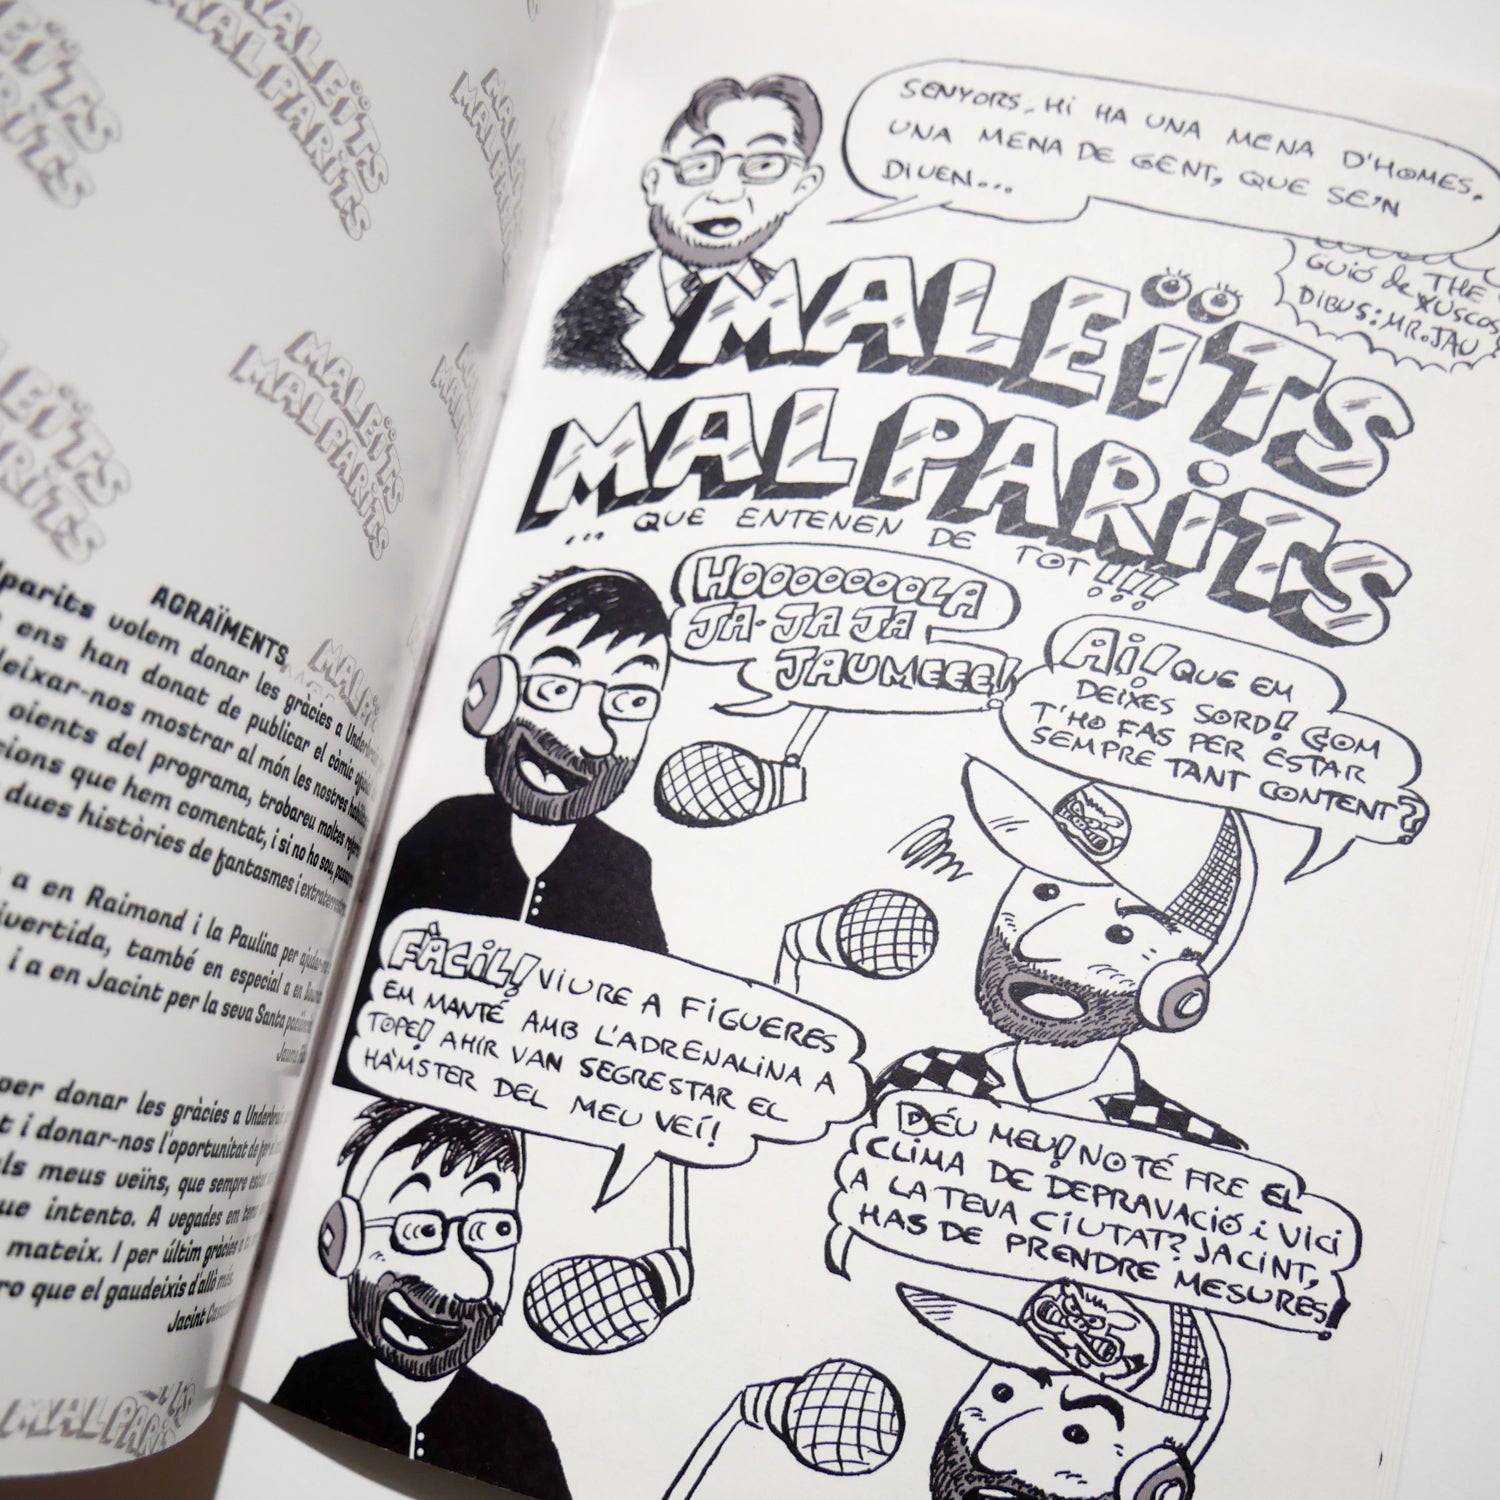 MALEÏTS
MALPARITS
MALEÏTS
MALPARITS
MALEÏTS
MALPARITS
AGRAÏMENTS
volem donar les gràcies a
ens han donat de publicar el còmic
deixar-nos mostrar al món les nostres
oients del programa, trobareu moltes
que hem comentat, i si no ho sou,
dues històries de fantasmes i
a en Raimond i la Paulina per
també en especial a en
i a en Jacint per la seva Santa
per donar les gràcies a
i donar-nos l'oportunitat de fer
meus veïns, que sempre
que intento. A vegades em
mateix. I per últim gràcies a
que el gaudeixis d'allò més.
Jacint
MALPARITS
SENYORS, HI HA UNA MENA D'HOMES,
UNA MENA DE GENT, QUE SE'N
DIUEN...
GUIÓ de THE
XUSCOS
DIBUS: MR. JAU
MALEÏTS
MALPARITS
... QUE ENTENEN DE TOT!!!!
HOOOOOOOLA
JA-JA JA
JAUMEEE!
AI! QUE EM
DEIXES SORD! COM
T'HO FAS PER ESTAR
SEMPRE TANT CONTENT?
FÀCIL! VIURE A FIGUERES
EM MANTÉ AMB L'ADRENALINA A
TOPE! AHIR VAN SEGRESTAR EL
HÀMSTER DEL MEU VEÍ!
DÉU MEU! NO TÉ FRE EL
CLIMA DE DEPRAVACIÓ i VICI
A LA TEVA CIUTAT? JACINT,
HAS DE PRENDRE MESURES!